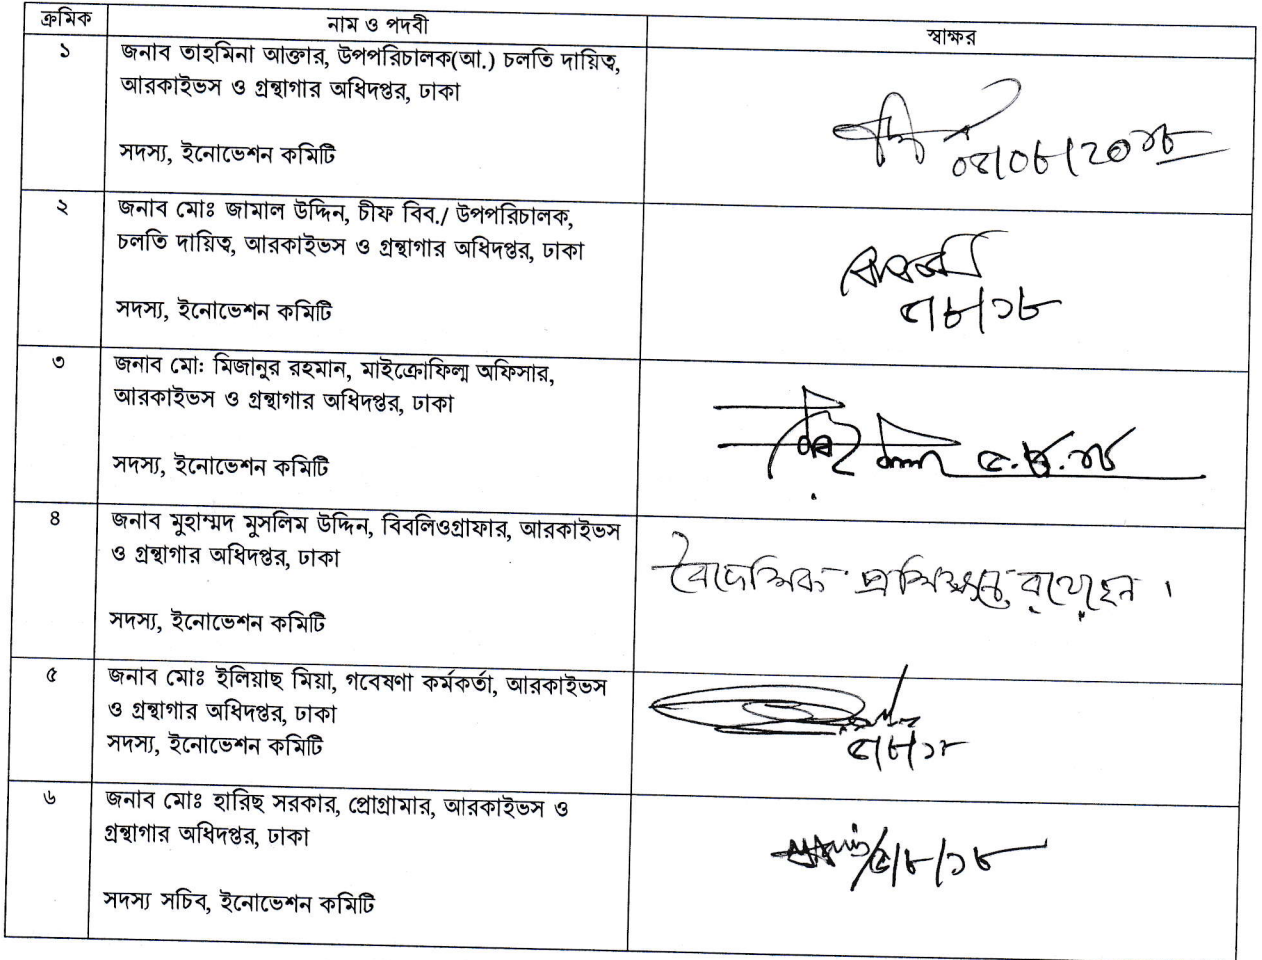 ক্রমিক নাম ও পদবী স্বাক্ষর
১ জনাব তাহমিনা আক্তার, উপপরিচালক(আ.) চলতি দায়িত্ব,
আরকাইভস ও গ্রন্থাগার অধিদপ্তর, ঢাকা
সদস্য, ইনোভেশন কমিটি
০৫/০৮/২০১৮
২ জনাব মোঃ জামাল উদ্দিন, চীফ বিব./ উপপরিচালক,
চলতি দায়িত্ব, আরকাইভস ও গ্রন্থাগার অধিদপ্তর, ঢাকা
সদস্য, ইনোভেশন কমিটি
৫/৮/১৮
৩ জনাব মো: মিজানুর রহমান, মাইক্রোফিল্ম অফিসার,
আরকাইভস ও গ্রন্থাগার অধিদপ্তর, ঢাকা
সদস্য, ইনোভেশন কমিটি
৫.৮.১৮
৪ জনাব মুহাম্মদ মুসলিম উদ্দিন, বিবলিওগ্রাফার, আরকাইভস
ও গ্রন্থাগার অধিদপ্তর, ঢাকা
সদস্য, ইনোভেশন কমিটি
বৈদেশিক প্রশিক্ষণে রয়েছেন ।
৫ জনাব মোঃ ইলিয়াছ মিয়া, গবেষণা কর্মকর্তা, আরকাইভস
ও গ্রন্থাগার অধিদপ্তর, ঢাকা
সদস্য, ইনোভেশন কমিটি
৫/৮/১৮
৬ জনাব মোঃ হারিছ সরকার, প্রোগ্রামার, আরকাইভস ও
গ্রন্থাগার অধিদপ্তর, ঢাকা
সদস্য সচিব, ইনোভেশন কমিটি
৫/৮/১৮